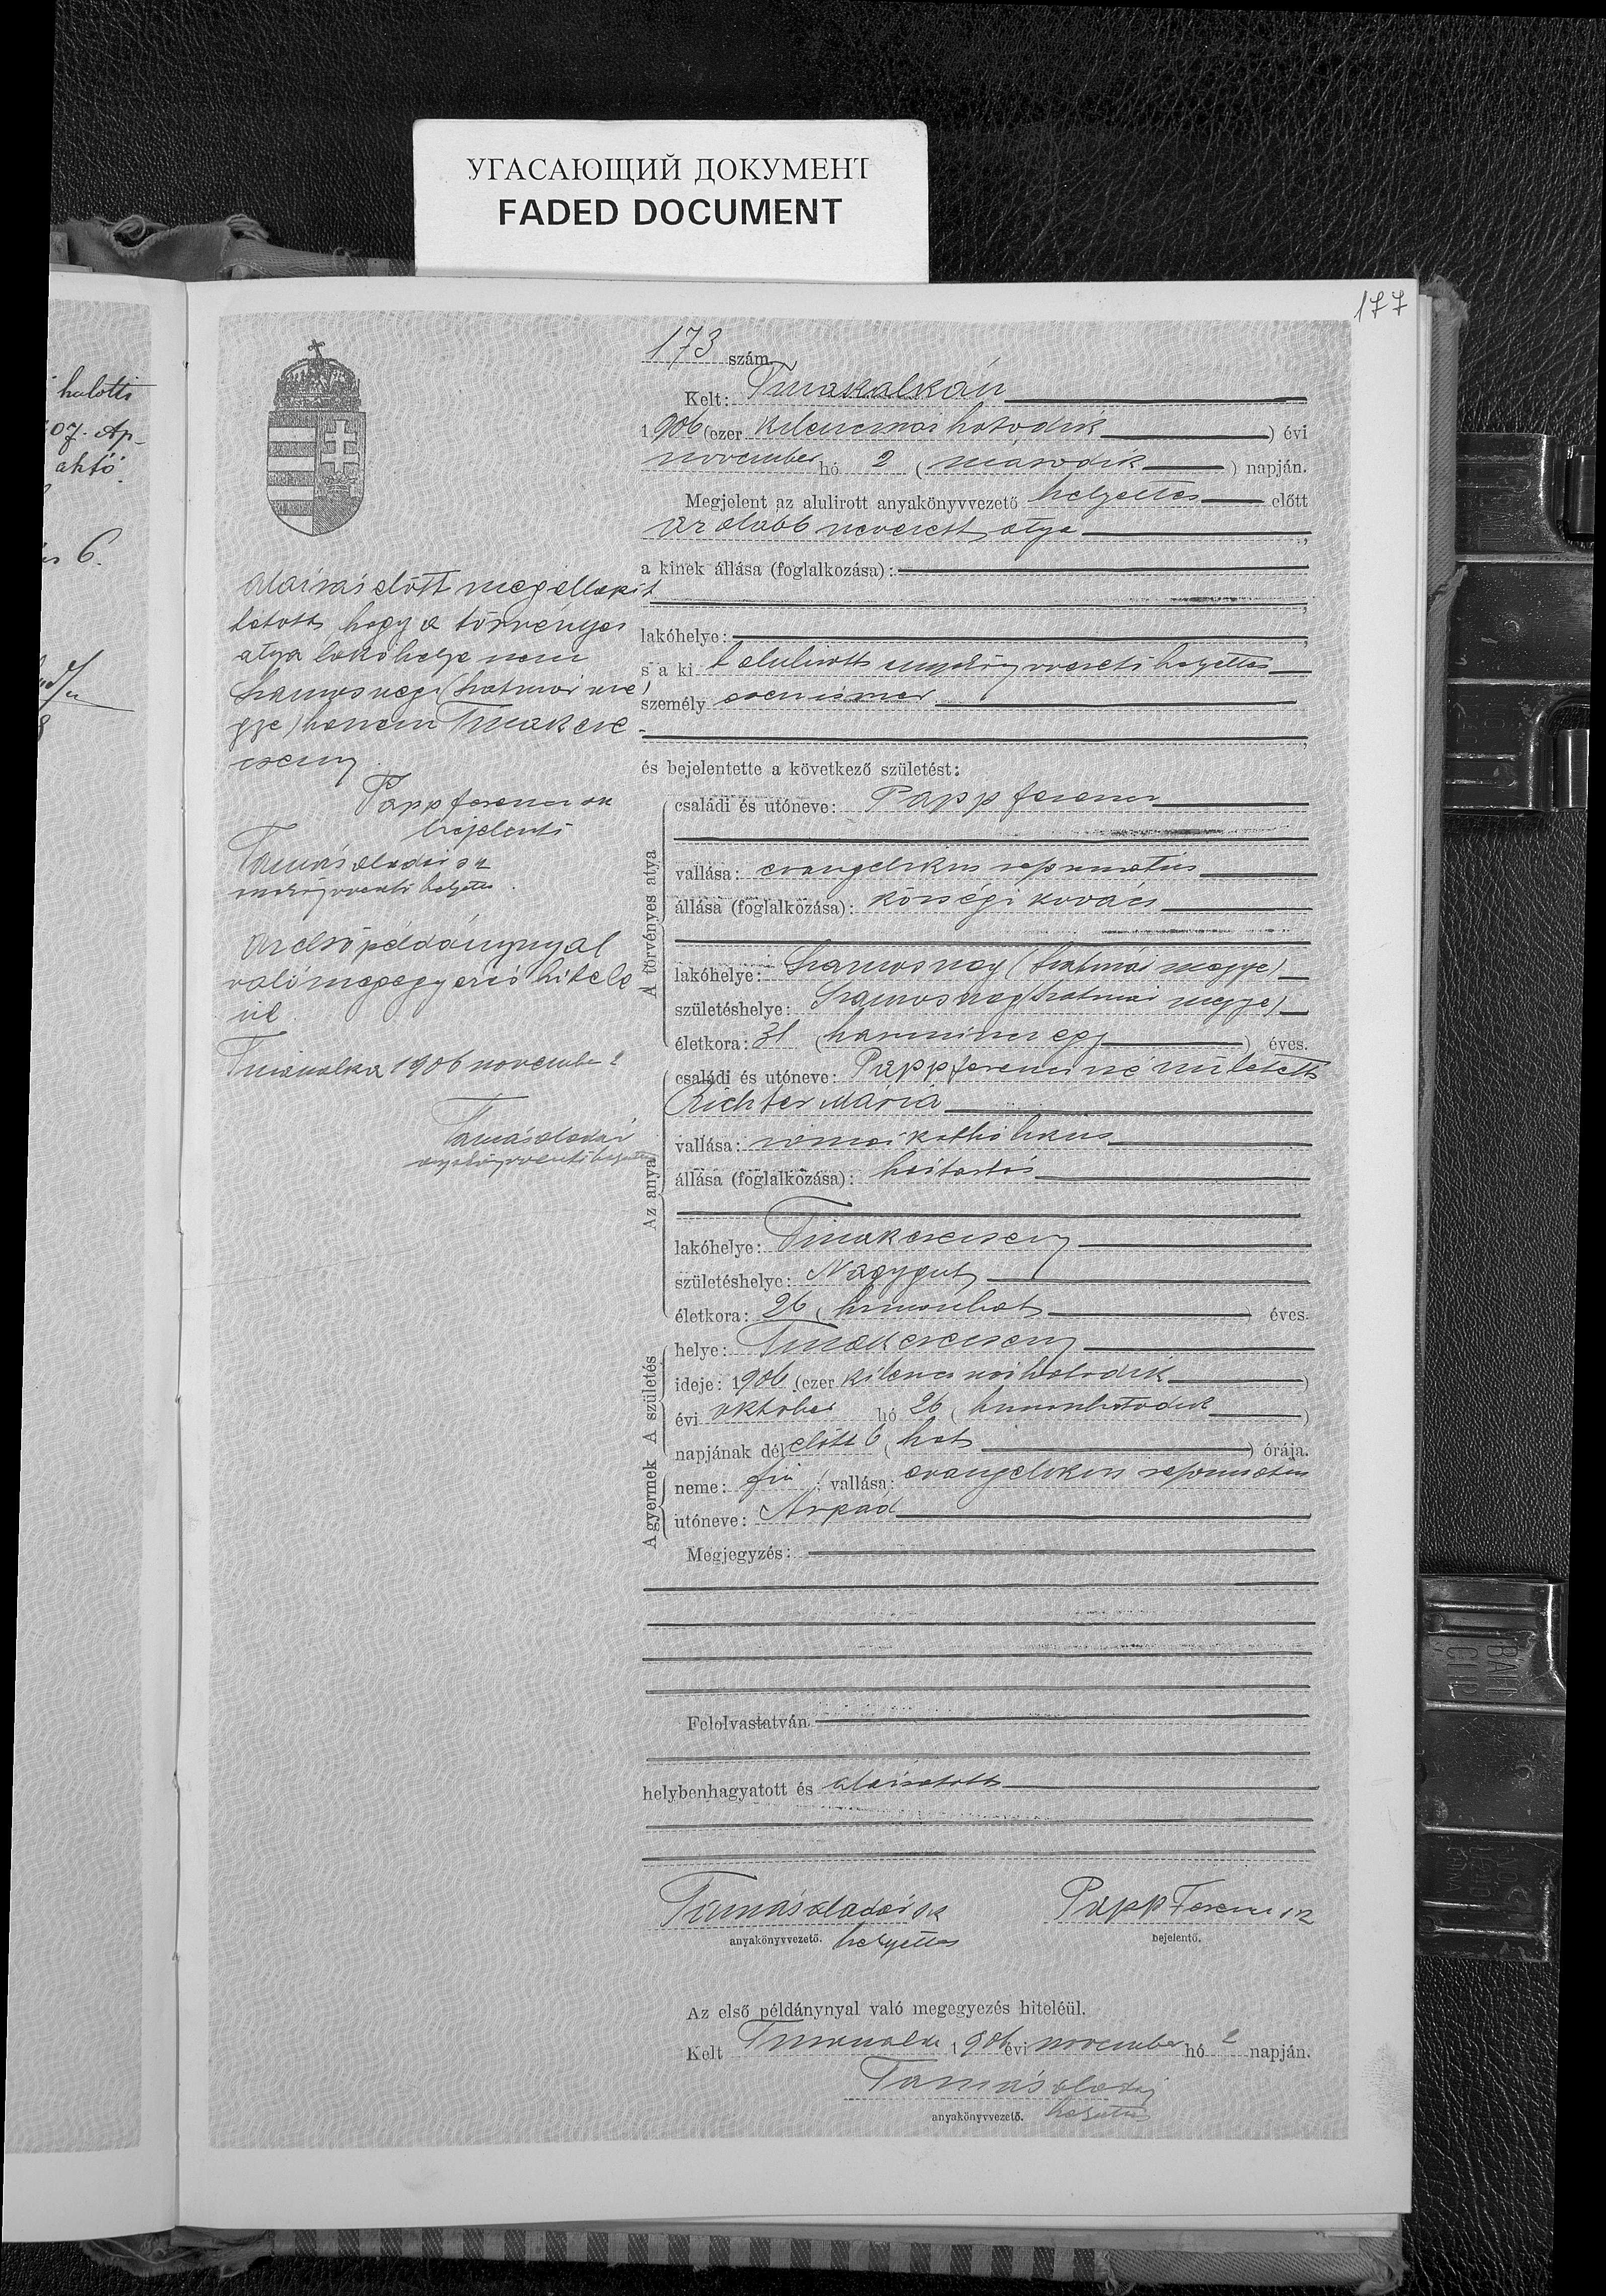 УГАСАЮЩИЙ ДОКУМЕНТ
FADED DOCUMENT
177
halotti
07. Ap-
6.
173 szám.
Kelt: Tiszakálkán
1906 (ezer kilencszázhatodik) évi
november hó 2 (második) napján.
Megjelent az alulirott anyakönyvvezető helyettes előtt
az alább nevezett atya,
a kinek állása (foglalkozása):
lakóhelye:
s a ki t alulirott anyakönyvvezető helyettes
személyesen ismer
és bejelentette a következő születést:
A törvényes atya
családi és utóneve: Papp Ferencz
vallása: evangelikus református
állása (foglalkozása): községi kovács
lakóhelye: Szamosszeg (Szatmár megye)
születéshelye: Szamosszeg (Szatmár megye)
életkora: 31 (harminczegy) éves.
Az anya
családi és utóneve: Papp Ferenczné született
Richter Mária
vallása: római katholikus
állása (foglalkozása): háztartás
lakóhelye: Tiszakerecseny
születéshelye: Nagygut
életkora: 26 (huszonhat) éves.
A születés
helye: Tiszakerecseny
ideje: 1906 (ezer kilenczszázhatodik)
évi október hó 26 (huszonhatodik)
napjának délelőtt 6 (hat) órája.
A gyermek
neme: fiú; vallása: evangelikus református
utóneve: Árpád
Megjegyzés:
Felolvastatván
helybenhagyatott és aláiratott
Tamás Aladár sk
anyakönyvvezető. helyettes
Papp Ferencz sk
bejelentő.
Az első példánynyal való megegyezés hiteléül.
Kelt 1906 évi november hó 2 napján.
Tamás Aladár
anyakönyvvezető. helyettes
Aláirás előtt megállapit
tatott, hogy a törvényes
atya lakóhelye nem
Szamosszeg (Szatmár me
gye) hanem Tiszakere-
cseny
Papp Ferencz sk
bejelentő
Tamás Aladár sk
anyakönyvvezető helyettes
Az első példánynyal
való megegyezés hitelé
ül.
1906 november 2
Tamás Aladár
anyakönyvvezető helyettes